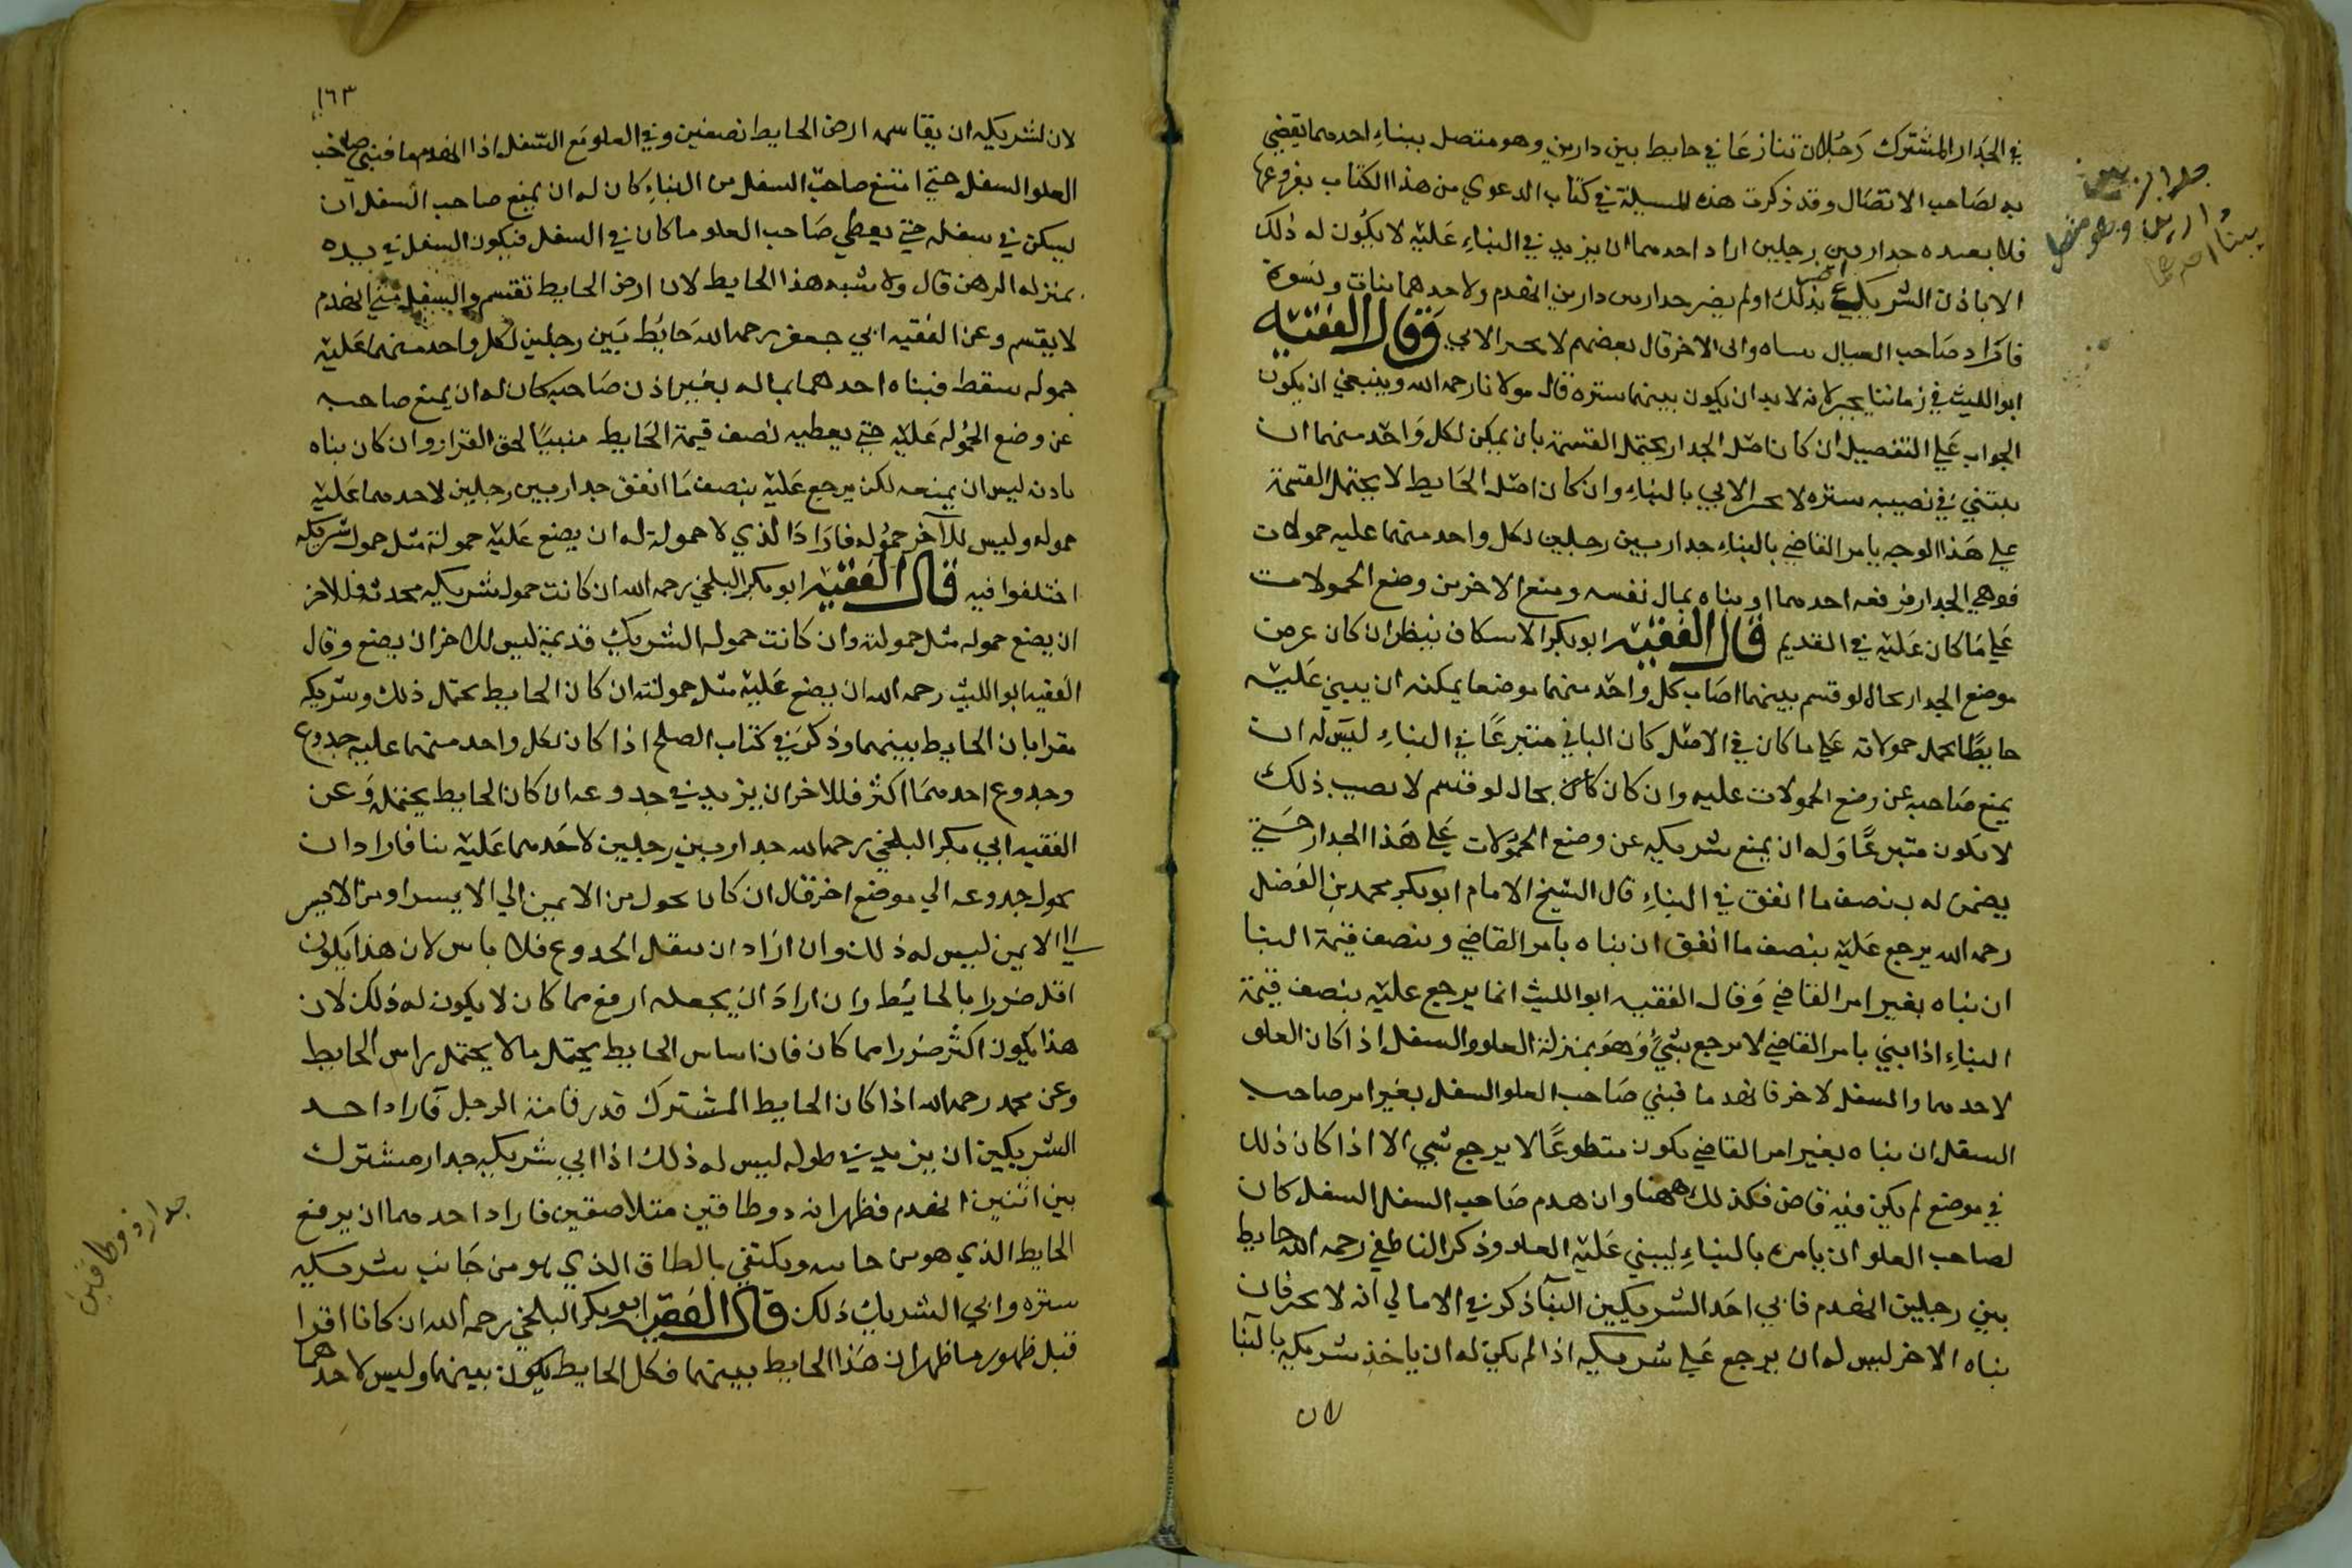 في الجدار المشترك رجلان تنازعا في حايط بين دارين وهو متصل ببناء احدهما يقضي
به لصاحب الاتصال وقد ذكرت هذه المسيلة في كتاب الدعوي من هذا الكتاب بفروعها
فلا بعيده جدار بين رجلين اراد احدهما ان يزيد في البناء عليه لا يكون له ذلك
الا باذن الشريك اضر بذلك او لم يضر جدار بين دارين انهدم ولاحدهما بنات ونسوة
فاراد صاحب العيال بناه وابى الاخر قال بعضهم لا يجبر الابي فقال الفقيه
ابو الليث في زماننا يجبر لانه لابد ان يكون بينهما ستره قال مولانا رحمه الله وينبغي ان يكون
الجواب علي التفصيل ان كان اصل الجدار يحتمل القسمة بان يمكن لكل واحد منهما ان
يبتني في نصيبه ستره لا يجبر الابي بالبناء وان كان اصل الحايط لا يحتمل القسمة
علي هذا الوجه يامر القاضي بالبناء جدار بين رجلين لكل واحد منهما عليه حمولات
فوهي الجدار فرفعه احدهما او بناه بمال نفسه ومنع الاخر من وضع الحمولات
علي ما كان عليه في القديم قال الفقيه ابو بكر الاسكاف ينظر ان كان عرض
موضع الجدار بحال لو قسم بينهما اصاب كل واحد منهما موضعا يمكنه ان يبني عليه
حايطا يحمل حمولاته علي ما كان في الاصل كان الباني متبرعا في البناء ليس له ان
يمنع صاحبه عن وضع الحمولات عليه وان كان بحال لو قسم لا يصيب ذلك
لا يكون متبرعا وله ان يمنع شريكه عن وضع الحمولات علي هذا الجدار حتي
يضمن له بنصف ما انفق في البناء قال الشيخ الامام ابو بكر محمد بن الفضل
رحمه الله يرجع عليه بنصف ما انفق ان بناه بامر القاضي وبنصف قيمة البنا
ان بناه بغير امر القاضي وقال الفقيه ابو الليث انما يرجع عليه بنصف قيمة
البناء اذا بني بامر القاضي لا يرجع بشيء وهو بمنزلة العلو والسفل اذا كان العلو
لاحدهما والسفل لاخر فانهدما فبني صاحب العلو السفل بغير امر صاحب
السفل ان بناه بغير امر القاضي يكون متطوعا لا يرجع بشي الا اذا كان ذلك
في موضع لم يكن فيه قاض فكذلك ههنا وان هدم صاحب السفل السفل كان
لصاحب العلو ان يامره بالبناء ليبني عليه العلو وذكر الناطفي رحمه الله حايط
بين رجلين انهدم فابي احد الشريكين البنا ذكر في الامالي انه لا يجبر فان
بناه الاخر ليس له ان يرجع علي شريكه اذا لم يكن له ان ياخذ شريكه بالبنا
لان
جدار بين
دارين وهو متصل
ببنا احدهما
١٦٣
لان لشريكه ان يقاسمه ارض الحايط نصفين وفي العلو مع السفل اذا انهدما فبني صاحب
العلو السفل حتي امتنع صاحب السفل من البناء كان له ان يمنع صاحب السفل ان
يسكن في سفله حتي يعطي صاحب العلو ما كان في السفل فيكون السفل في يده
بمنزله الرهن قال ولا يشبه هذا الحايط لان ارض الحايط تقسم والسفل متي انهدم
لا يقسم وعن الفقيه ابي جعفر رحمه الله حايط بين رجلين لكل واحد منهما عليه
حموله سقط فبناه احدهما بماله بغير اذن صاحبه كان له ان يمنع صاحبه
عن وضع الحموله عليه حتي يعطيه نصف قيمة الحايط مبنيا لحق القرار وان كان بناه
باذنه ليس ان يمنعه لكن يرجع عليه بنصف ما انفق جدار بين رجلين لاحدهما عليه
حموله وليس للآخر حموله فاراد الذي لا حمولة له ان يضع عليه حمولة مثل حموله شريكه
اختلفوا فيه قال الفقيه ابو بكر البلخي رحمه الله ان كانت حموله شريكه محدثه فللاخر
ان يضع حموله مثل حمولته وان كانت حموله الشريك قديمة ليس للاخر ان يضع وقال
الفقيه ابو الليث رحمه الله ان يضع عليه مثل حمولته ان كان الحايط يحتمل ذلك وشريكه
مقرا بان الحايط بينهما وذكر في كتاب الصلح اذا كان لكل واحد منهما عليه جدوع
وجدوع احدهما اكثر فللاخر ان يزيد في جدوعه ان كان الحايط يحتمله وعن
الفقيه ابي بكر البلخي رحمه الله جدار بين رجلين لاحدهما عليه بنا فاراد ان
يحول جدوعه الي موضع اخر قال ان كان يحول من الايمن الي الايسر او من الايسر
الي الايمن ليس له ذلك وان اراد ان يسفل الجدوع فلا باس لان هذا يكون
اقل ضررا بالحايط وان اراد ان يجعله ارفع مما كان لا يكون له ذلك لان
هذا يكون اكثر ضررا مما كان فان اساس الحايط يحتمل ما لا يحتمل راس الحايط
وعن محمد رحمه الله اذا كان الحايط المشترك قدر قامة الرجل فاراد احد
الشريكين ان يزيد في طوله ليس له ذلك اذا ابي شريكه جدار مشترك
بين اثنين انهدم فظهر انه ذو طاقين متلاصقين فاراد احدهما ان يرفع
الحايط الذي هو من جانبه ويكتفي بالطاق الذي هو من جانب شريكه
ستره وابي الشريك ذلك قال الفقيه ابو بكر البلخي رحمه الله ان كانا اقرا
قبل ظهور ما ظهر ان هذا الحايط بينهما فكل الحايط يكون بينهما وليس لاحدهما
جدار ذو طاقين